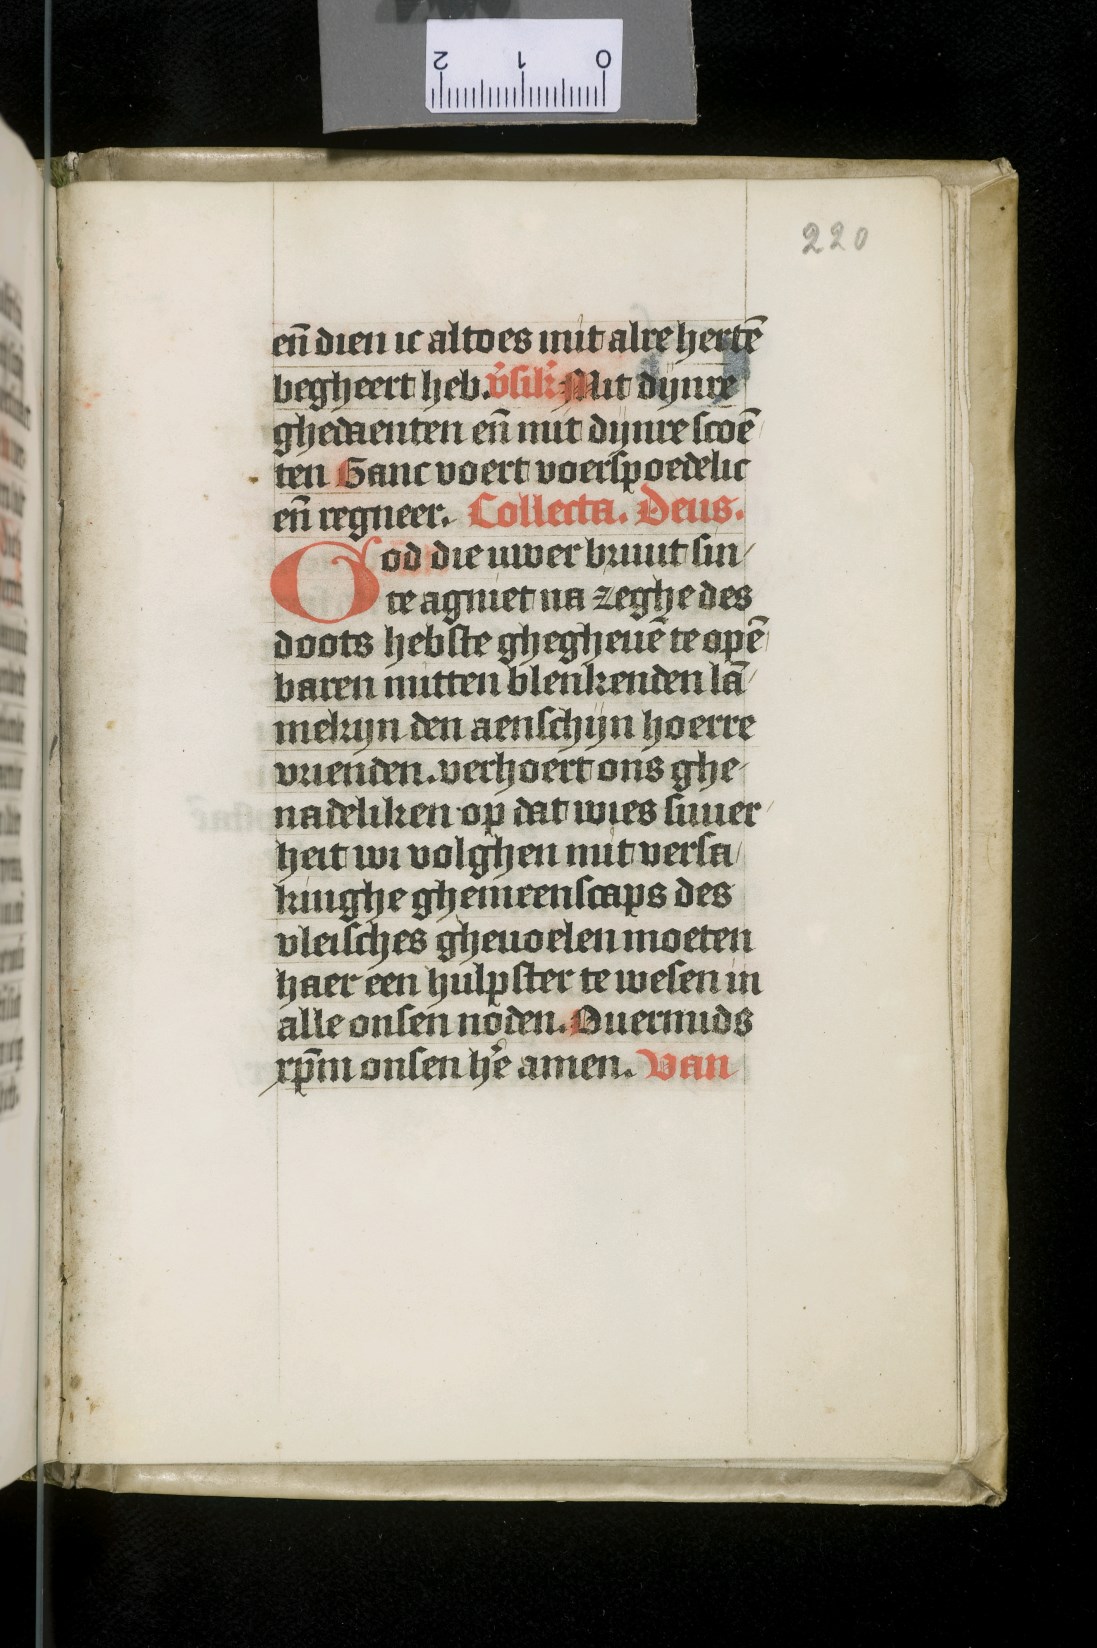 220
en̄ dien ic altoes mit alre hertē
begheert heb. v̓sik̓. Mit dijnre
ghedaenten en̄ mit dijnre scoē
ten Ganc voert voerspoedelic
en̄ regneer. Collecta. Deus.
God die uwer bruut sin
te agniet na zeghe des
doots hebste ghegheuē te opē
baren mitten blenkenden lā
mekijn den aenschijn hoerre
vrienden. verhoert ons ghe-
nadeliken op dat wies suuer
heit wi volghen mit versa
kinghe ghemeenscaps des
vleisches gheuoelen moeten
haer een hulpster te wesen in
alle onsen noden. Ouermids
xp̄m onsen he̓ amen. Van
2 1 0